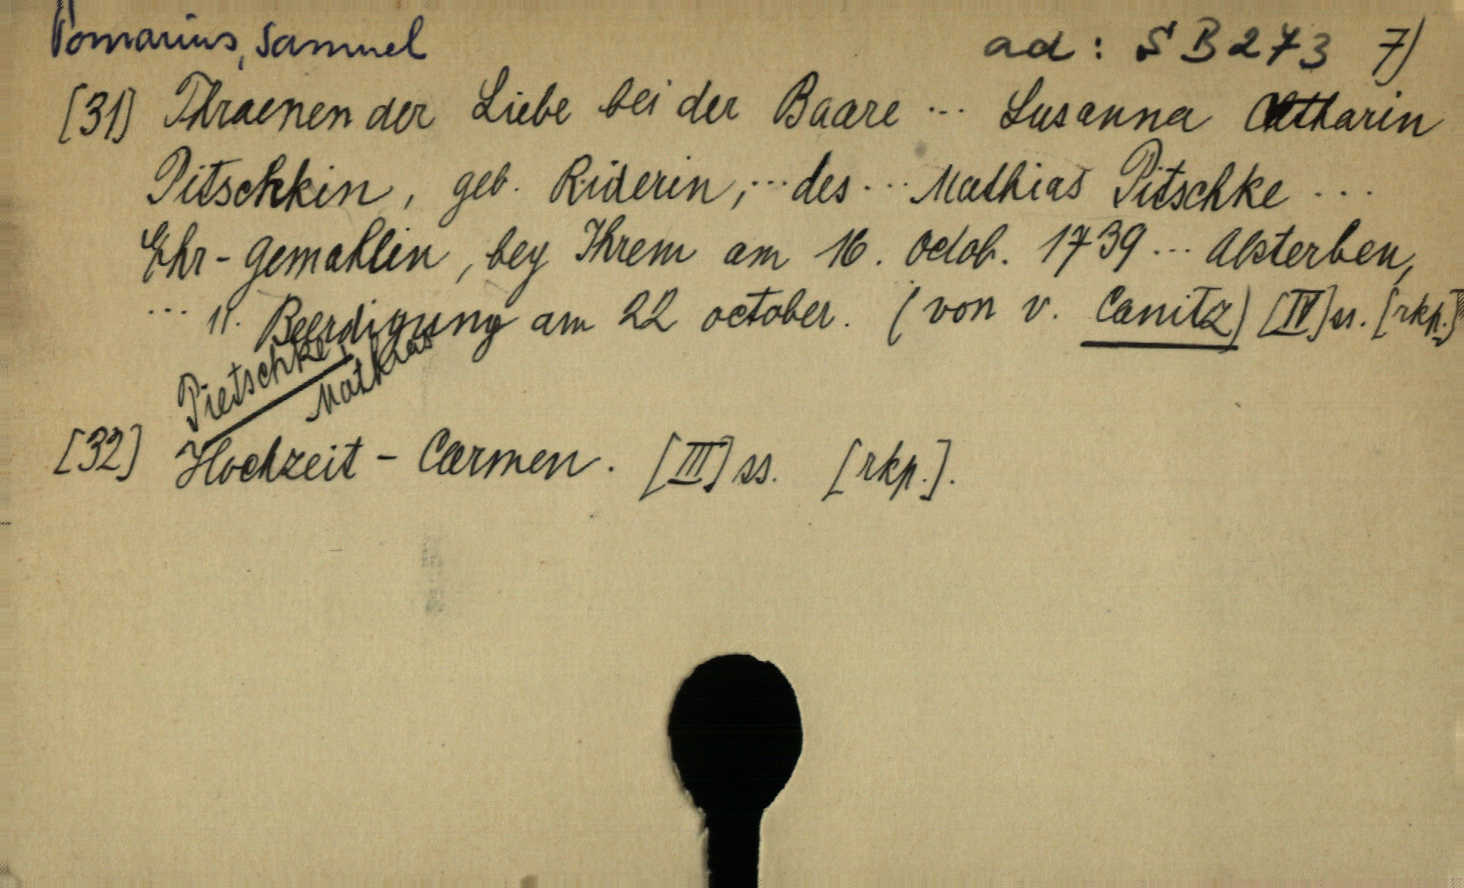 Pomarius, Samuel ad: SB273 7)
[31] Thraenen der Liebe bei der Baare ... Susanna Catharin
Pitschkin, geb. Riderin, ... des ... Mathias Pitschke ...
Ehr-Gemahlin, bey Ihrem am 16. Octob. 1739 ... Absterben,
... u. Beerdigung am 22 october. (von v. Canitz) [IV] ss. [rkp.]
Pietschke,
Mathias
[32] Hochzeit - Carmen. [III] ss. [rkp.].